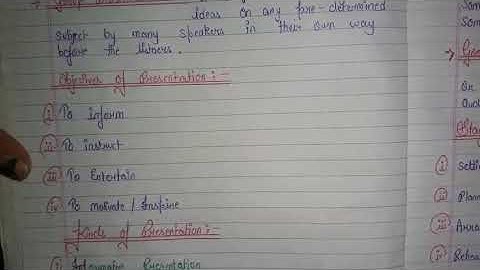 Ideas on any pre-determined
subject by many speakers in their own way
before the listners.
Objectives of Presentation :-
i) To inform
ii) To instruct
iii) To Entertain
iv) To motivate / Inspire
Kinds of Presentation :-
i) Informative Presentation
Som
Som
→ Gen
Or
aud
i) Setti
ii) Plann
iii) Arra
iv) Rehea